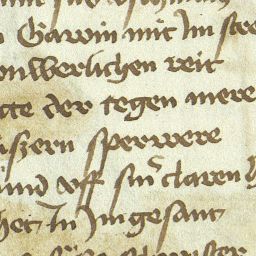 Gawin mit Im stre
onwerlichen reit
tte der tegen mere
iszern sperwere
und vff sinr claren h
het In Jm gesant